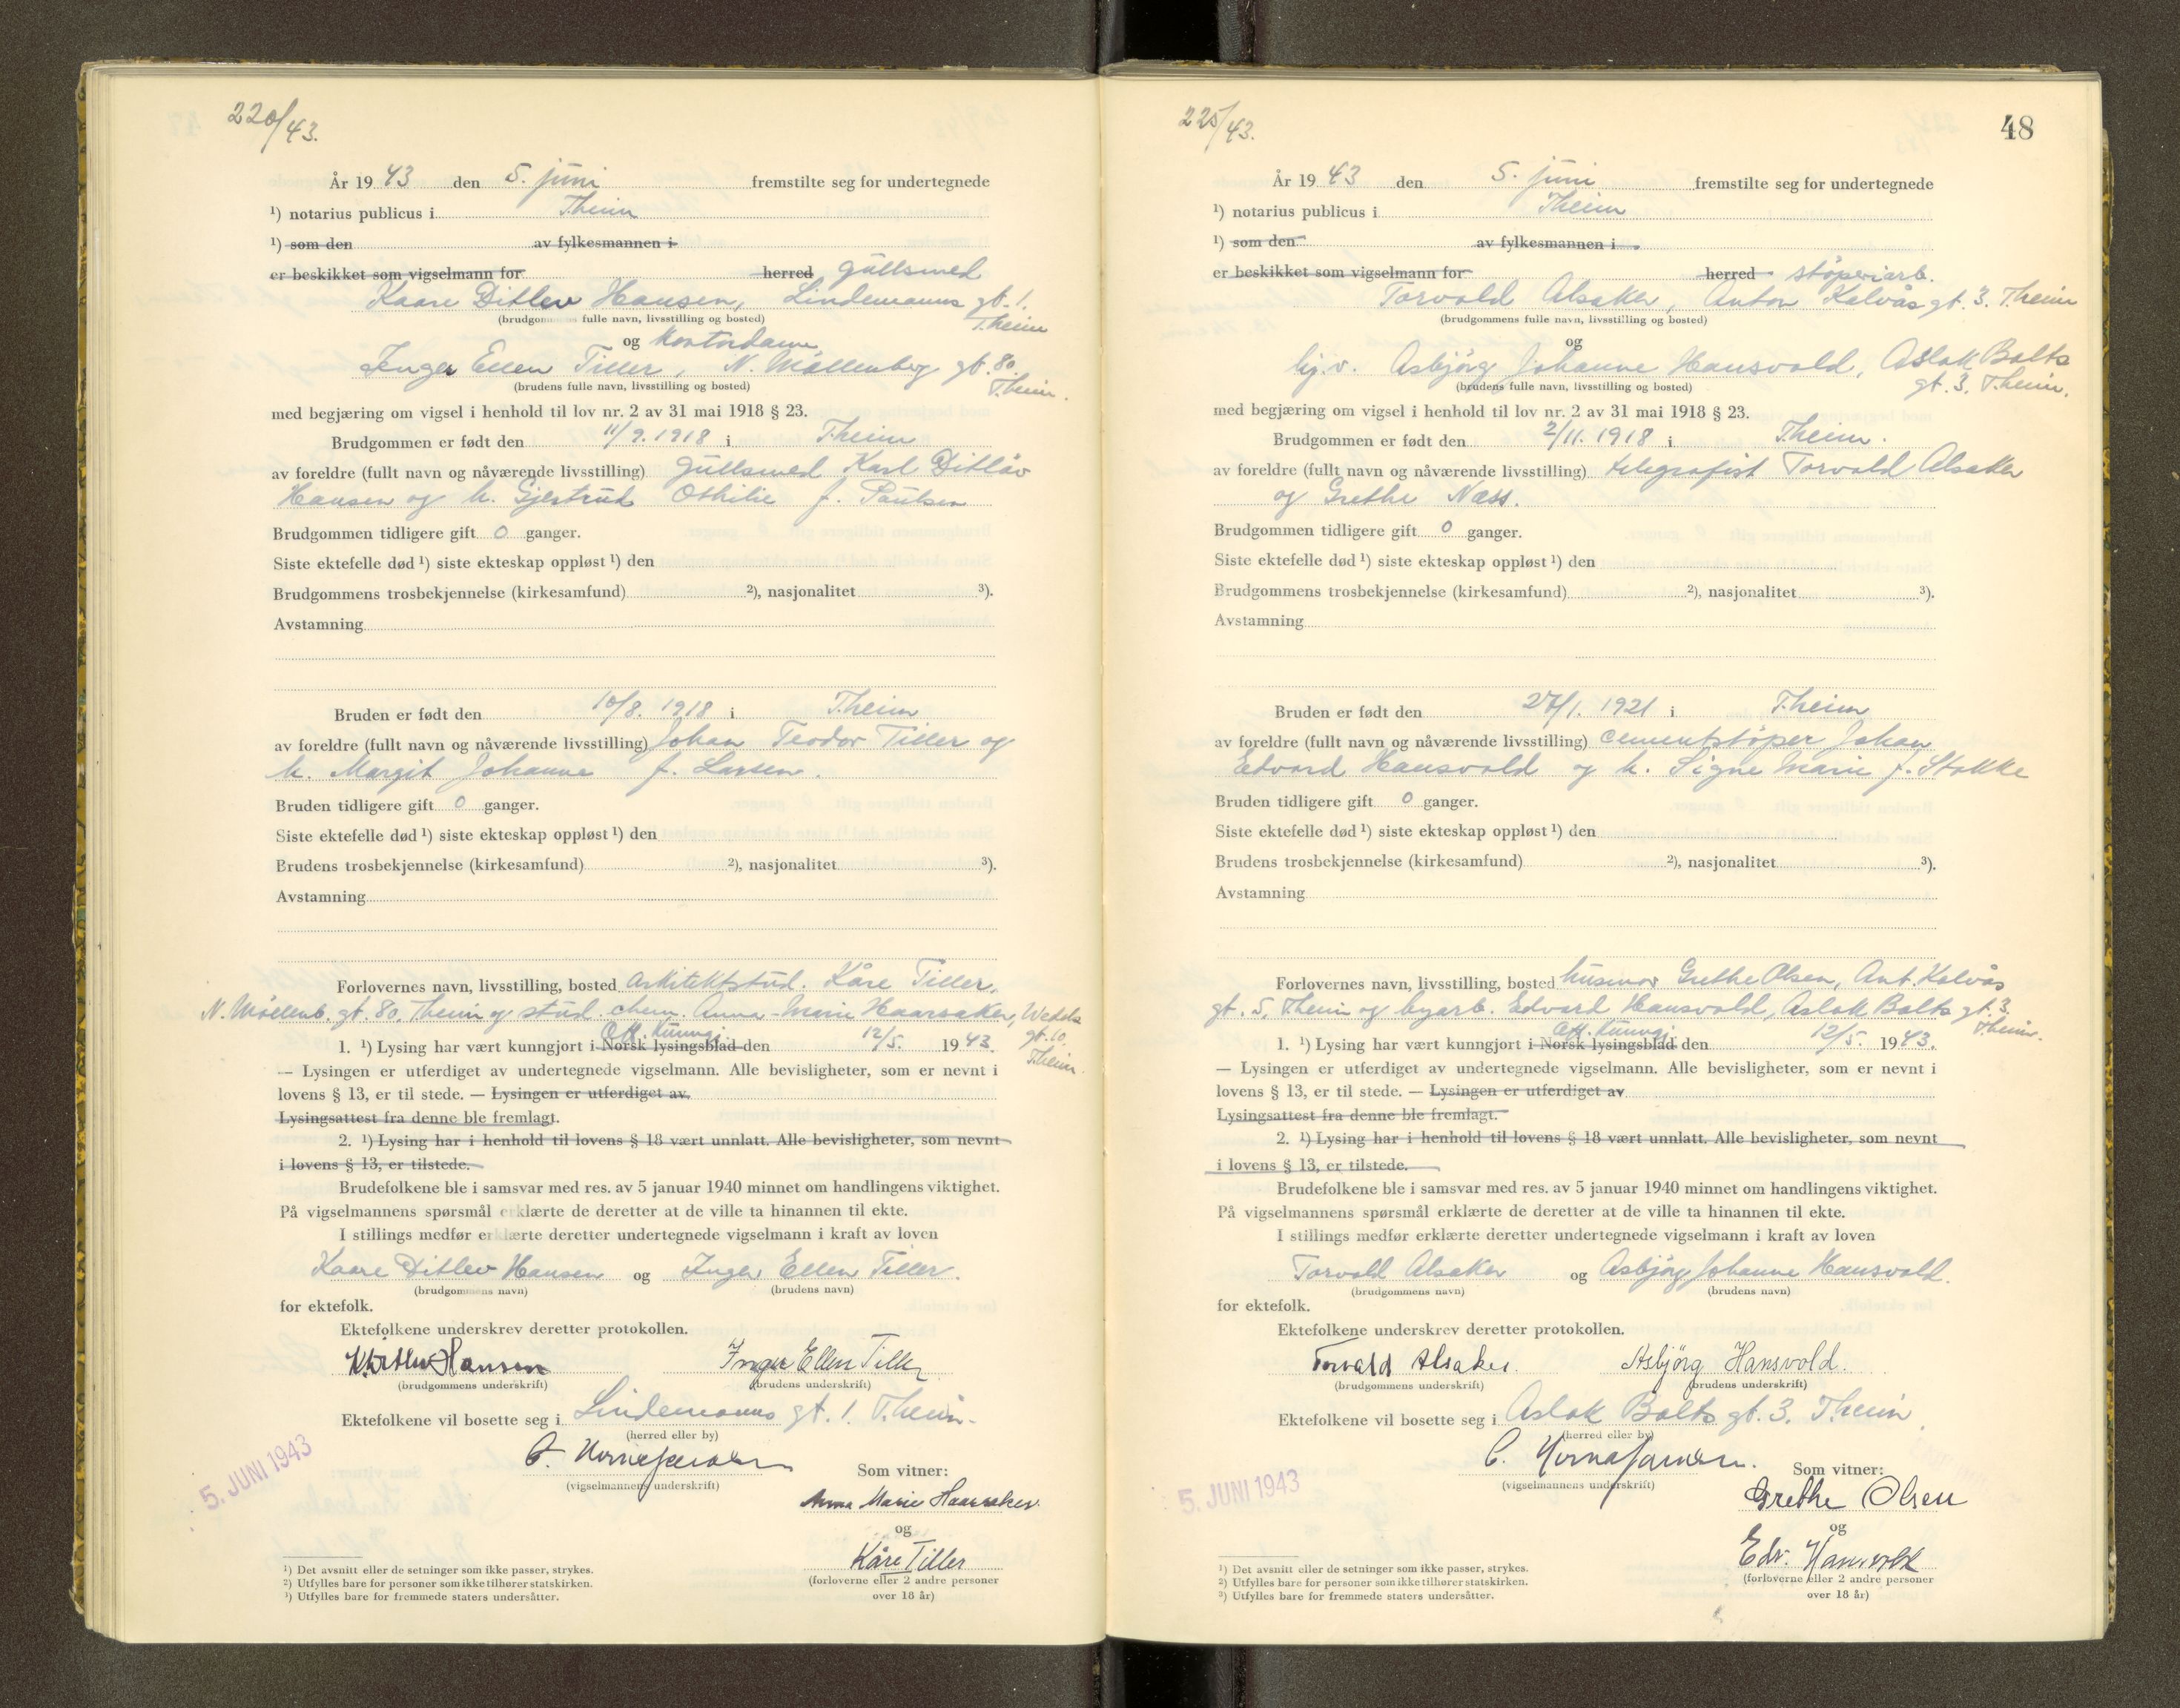 220/43.
År 19 43 den 5. juni fremstilte seg for undertegnede
¹) notarius publicus i T.heim
¹) som den av fylkesmannen i
er beskikket som vigselmann for herred gullsmed
Kaare Ditlev Hansen, Lindemanns gt. 1.
T.heim
(brudgommens fulle navn, livsstilling og bosted)
og kontordame
Inger Ellen Tiller, N. Möllenberg gt. 80.
T.heim.
(brudens fulle navn, livsstilling og bosted)
med begjæring om vigsel i henhold til lov nr. 2 av 31 mai 1918 § 23.
Brudgommen er født den 11/9. 1918 i T.heim
av foreldre (fullt navn og nåværende livsstilling) gullsmed Karl Ditlåv
Hansen og h. Gjertrud Othilie f. Paulsen
Brudgommen tidligere gift 0 ganger.
Siste ektefelle død ¹) siste ekteskap oppløst ¹) den
Brudgommens trosbekjennelse (kirkesamfund) ²), nasjonalitet ³).
Avstamning
Bruden er født den 10/8. 1918 i T.heim
av foreldre (fullt navn og nåværende livsstilling) Johan Teodor Tiller og
h. Margit Johanne f. Larsen.
Bruden tidligere gift 0 ganger.
Siste ektefelle død ¹) siste ekteskap oppløst ¹) den
Brudens trosbekjennelse (kirkesamfund) ²), nasjonalitet ³).
Avstamning
Forlovernes navn, livsstilling, bosted arkitektstud. Kåre Tiller,
N. Möllenb. gt. 80, T.heim og stud. chem. Anna-Marie Haarsaker, Wedels
gt. 10.
T.heim.
Off. kunngj.
1. ¹) Lysing har vært kunngjort i Norsk lysingsblad den 12/5. 19 43.
— Lysingen er utferdiget av undertegnede vigselmann. Alle bevisligheter, som er nevnt i
lovens § 13, er til stede. — Lysingen er utferdiget av
Lysingsattest fra denne ble fremlagt.
2. ¹) Lysing har i henhold til lovens § 18 vært unnlatt. Alle bevisligheter, som nevnt
i lovens § 13, er tilstede.
Brudefolkene ble i samsvar med res. av 5 januar 1940 minnet om handlingens viktighet.
På vigselmannens spørsmål erklærte de deretter at de ville ta hinannen til ekte.
I stillings medfør erklærte deretter undertegnede vigselmann i kraft av loven
Kaare Ditlev Hansen og Inger Ellen Tiller.
(brudgommens navn) (brudens navn)
for ektefolk.
Ektefolkene underskrev deretter protokollen.
K. Ditlev Hansen Inger Ellen Tiller
(brudgommens underskrift) (brudens underskrift)
Ektefolkene vil bosette seg i Lindemanns gt. 1. T.heim.
(herred eller by)
5. JUNI 1943
(vigselmannens underskrift)
Som vitner:
Anna Marie Haarsaker.
og
Kåre Tiller
(forloverne eller 2 andre personer
over 18 år)
¹) Det avsnitt eller de setninger som ikke passer, strykes.
²) Utfylles bare for personer som ikke tilhører statskirken.
³) Utfylles bare for fremmede staters undersåtter.
225/43.
48
År 19 43 den 5. juni fremstilte seg for undertegnede
¹) notarius publicus i T.heim
¹) som den av fylkesmannen i
er beskikket som vigselmann for herred støperiarb.
Torvald Alsaker, Anton Kalvås gt. 3. T.heim
(brudgommens fulle navn, livsstilling og bosted)
og
hj.v. Asbjörg Johanne Hansvold, Aslak Bolts
gt. 3. T.heim.
(brudens fulle navn, livsstilling og bosted)
med begjæring om vigsel i henhold til lov nr. 2 av 31 mai 1918 § 23.
Brudgommen er født den 2/11. 1918 i T.heim.
av foreldre (fullt navn og nåværende livsstilling) telegrafist Torvald Alsaker
og Grethe Næss.
Brudgommen tidligere gift 0 ganger.
Siste ektefelle død ¹) siste ekteskap oppløst ¹) den
Brudgommens trosbekjennelse (kirkesamfund) ²), nasjonalitet ³).
Avstamning
Bruden er født den 27/1. 1921 i T.heim
av foreldre (fullt navn og nåværende livsstilling) cementstöper Johan
Edvard Hansvold og h. Signe Marie f. Stokke
Bruden tidligere gift 0 ganger.
Siste ektefelle død ¹) siste ekteskap oppløst ¹) den
Brudens trosbekjennelse (kirkesamfund) ²), nasjonalitet ³).
Avstamning
Forlovernes navn, livsstilling, bosted husmor Grethe Olsen, Ant. Kalvås
gt. 5, T.heim og byarb. Edvard Hansvold, Aslak Bolts gt. 3.
T.heim.
Off. kunngj.
1. ¹) Lysing har vært kunngjort i Norsk lysingsblad den 12/5. 19 43.
— Lysingen er utferdiget av undertegnede vigselmann. Alle bevisligheter, som er nevnt i
lovens § 13, er til stede. — Lysingen er utferdiget av
Lysingsattest fra denne ble fremlagt.
2. ¹) Lysing har i henhold til lovens § 18 vært unnlatt. Alle bevisligheter, som nevnt
i lovens § 13, er tilstede.
Brudefolkene ble i samsvar med res. av 5 januar 1940 minnet om handlingens viktighet.
På vigselmannens spørsmål erklærte de deretter at de ville ta hinannen til ekte.
I stillings medfør erklærte deretter undertegnede vigselmann i kraft av loven
Torvald Alsaker og Asbjörg Johanne Hansvold.
(brudgommens navn) (brudens navn)
for ektefolk.
Ektefolkene underskrev deretter protokollen.
Torvald Alsaker. Asbjörg Hansvold.
(brudgommens underskrift) (brudens underskrift)
Ektefolkene vil bosette seg i Aslak Bolts gt. 3. T.heim.
(herred eller by)
5. JUNI 1943
(vigselmannens underskrift)
Som vitner:
Grethe Olsen
og
Edv. Hansvold
(forloverne eller 2 andre personer
over 18 år)
¹) Det avsnitt eller de setninger som ikke passer, strykes.
²) Utfylles bare for personer som ikke tilhører statskirken.
³) Utfylles bare for fremmede staters undersåtter.